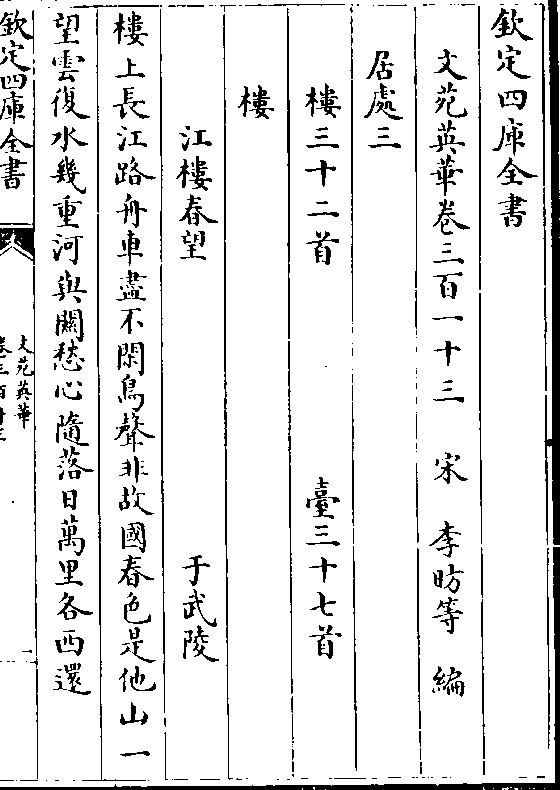 欽定四庫全書
文苑英華卷三百一十三 宋 李昉等 編
居處三
樓三十二首 臺三十七首
樓
江樓春望 于武陵
樓上長江路舟車盡不閑鳥聲非故國春色是他山一
望雲復水幾重河與關愁心隨落日萬里各西還
欽定四庫全書
文苑英華
卷三百十三
一